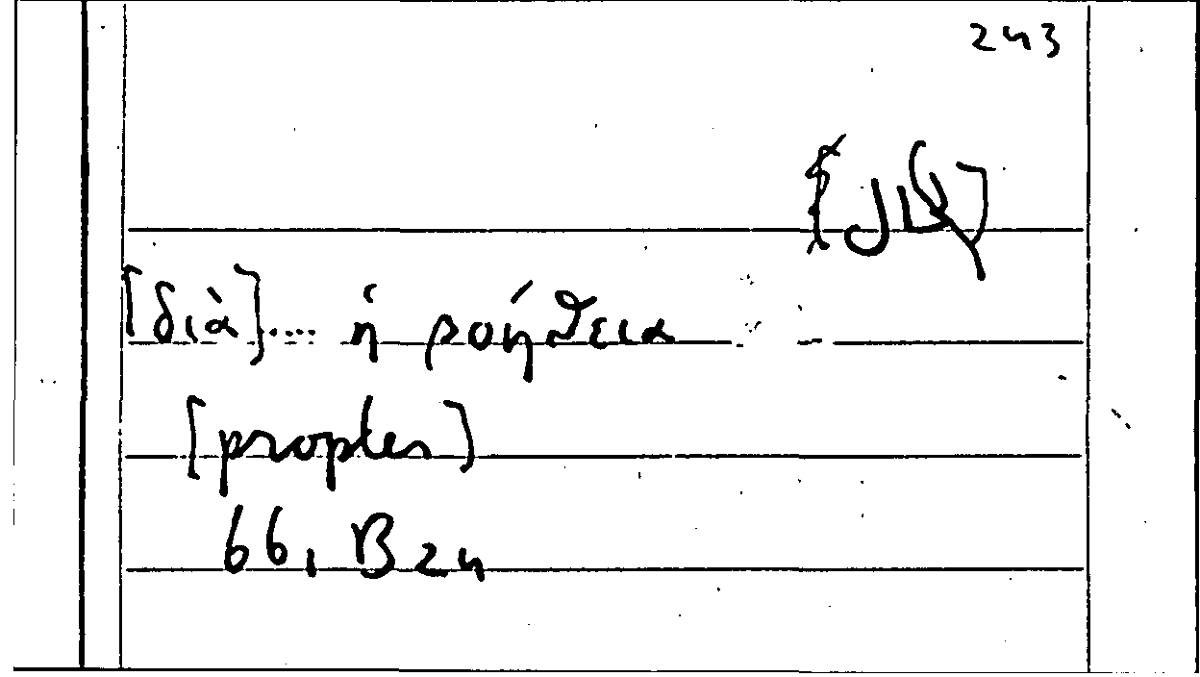 243
[διὰ].... ἡ ροήθεια
[propter]
66, B 24